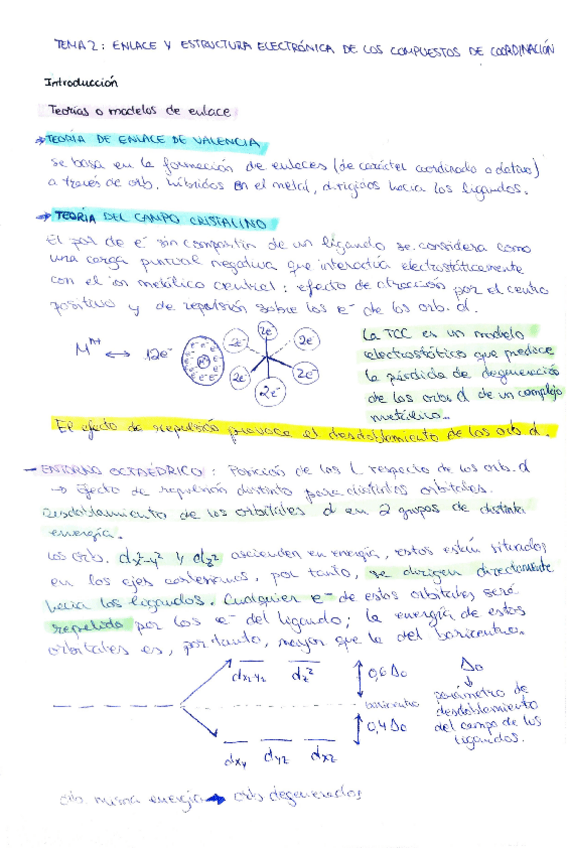 TEMA 2: ENLACE Y ESTRUCTURA ELECTRÓNICA DE LOS COMPUESTOS DE COORDINACIÓN
Introducción
Teorías o modelos de enlace
→ TEORÍA DE ENLACE DE VALENCIA
Se basa en la formación de enlaces (de carácter coordinado o dativo)
a través de orb. híbridos en el metal, dirigidos hacia los ligandos.
→ TEORÍA DEL CAMPO CRISTALINO
El par de e⁻ sin compartir de un ligando se considera como
una carga puntual negativa que interactúa electrostáticamente
con el ion metálico central: efecto de atracción por el centro
positivo y de repulsión sobre los e⁻ de los orb. d.
Mⁿ⁺ ↔ 12e⁻
2e⁻ 2e⁻ 2e⁻
2e⁻ 2e⁻ 2e⁻
La TCC es un modelo
electrostático que predice
la pérdida de degeneración
de los orb. d de un complejo
metálico.
El efecto de repulsión provoca el desdoblamiento de los orb d.
- ENTORNO OCTAÉDRICO: Posición de los L respecto de los orb. d
→ Efecto de repulsión distinto para distintos orbitales.
Desdoblamiento de los orbitales d en 2 grupos de distinta
energía.
Los orb. dx²-y² y dz² ascienden en energía, estos están situados
en los ejes cartesianos, por tanto, se dirigen directamente
hacia los ligandos. Cualquier e⁻ de estos orbitales será
repelido por los e⁻ del ligando; la energía de estos
orbitales es, por tanto, mayor que la del baricentro.
dx²-y² dz²
0,6Δo
baricentro
0,4Δo
dxy dyz dxz
Δo
parámetro de
desdoblamiento
del campo de los
ligandos.
orb. misma energía → orb degenerados